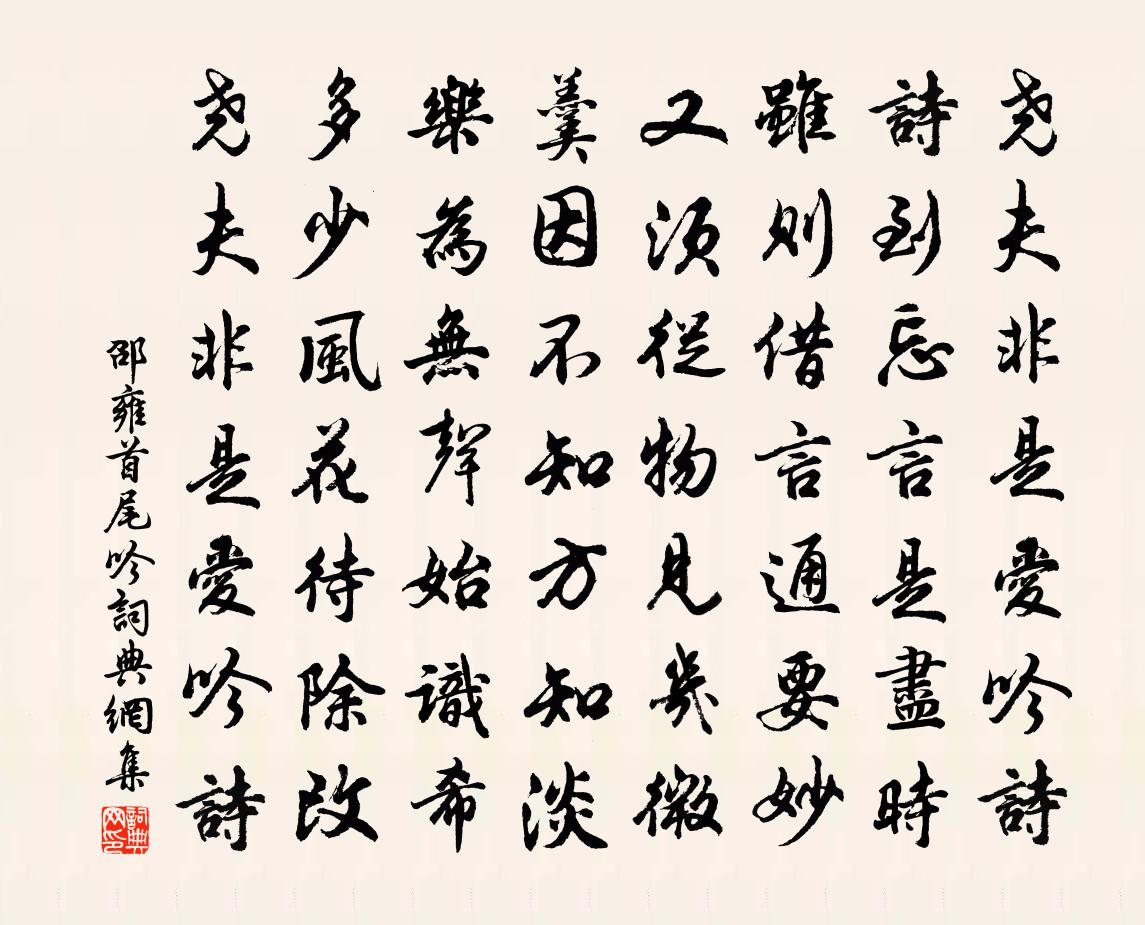 尧夫非是愛吟詩
詩到忘言言是盡時
雖則借言通要妙
又須從物見幾微
羹因不知方知淡
樂為無聲始識希
多少風花待除改
尧夫非是愛吟詩
邵雍首尾吟詞典網集
詞典网印